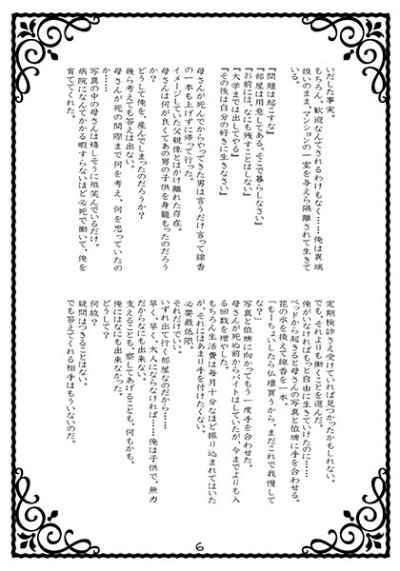 いだした事実。
もちろん、歓迎なんてされるわけもなく……俺は異端
扱いのまま、マンションの一室を与えら隔離されて生きて
いる。
『問題は起こすな』
『部屋は用意してある。そこで暮らしなさい』
『お前には、なにも残すことはしない』
『大学までは出してやる』
『その後は自分の好きに生きなさい』
母さんが死んでからやってきた男は言うだけ言って線香
の一本も上げずに帰って行った。
イメージしていた父親像とはかけ離れた存在。
母さんは何が良くてあの男の子供を身籠もったのだろう
か？
どうして俺を、産んでしまったのだろうか？
幾ら考えても答えは出ない。
母さんが死の間際まで何を考え、何を思っていたの
か……
写真の中の母さんは嬉しそうに微笑んでいるだけ。
病院になんてかかる暇すらないほど必死で働いて、俺を
育ててくれた。
定期検診さえ受けていれば見つかったかもしれない。
でも、それよりも働くことを選んだ。
俺がいなければもっと自由に生きていけたのに……
ベッドから起きると母さんの写真と位牌に手を合わせる。
花の水を換えて線香を一本。
「もーちょいしたら仏壇買うから、まだこれで我慢して
な？」
写真と位牌に向かってもう一度手を合わせた。
母さんが死ぬ前からバイトはしていたが、今までよりも入
る回数を増やした。
もちろん生活費は毎月十分なほど振り込まれてはいた
が、それにはあまり手を付けたくない。
必要最低限。
それだけでいい。
いずれ出て行く部屋なのだから……
早く、早く、大人にならなければ……俺は子供で、無力
だからなにも出来なかった。
支えることも、察してあげることも、何もかも。
俺にはなにも出来なかった。
どうして？
何故？
疑問はつきることはない。
でも答えてくれる相手はもういないのだ。
6